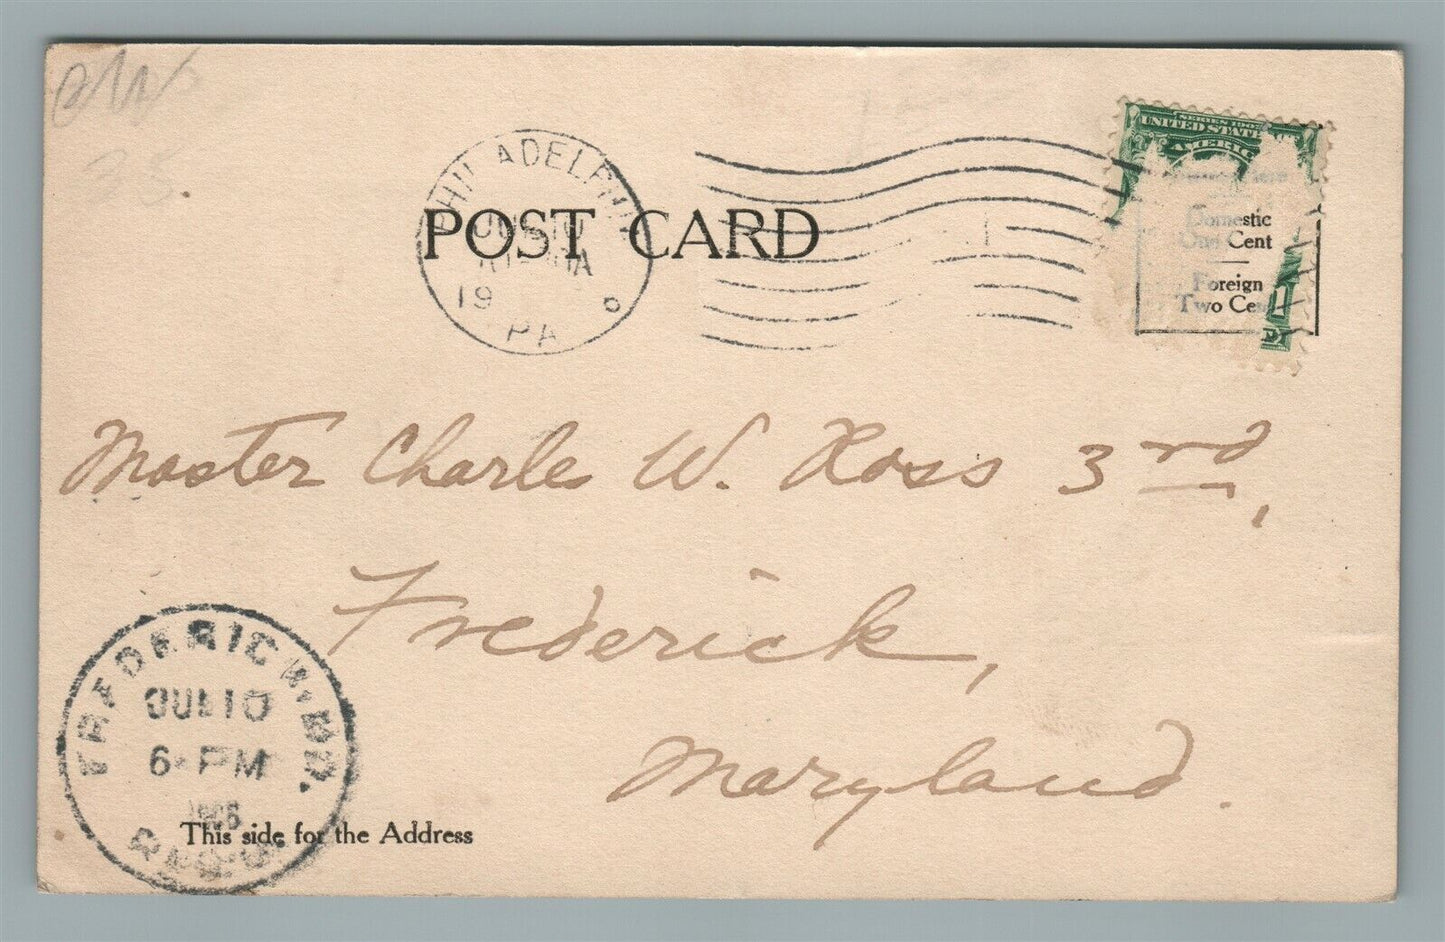 35
PHILADELPHIA
10
19
PA
POST CARD
SERIES 1902
UNITED STATES
AMERICA
Domestic
One Cent
Foreign
Two Cent
Master Charles W. Ross 3rd,
Frederick,
Maryland.
FREDERICK, MD.
10
6- PM
1906
REC'D.
This side for the Address